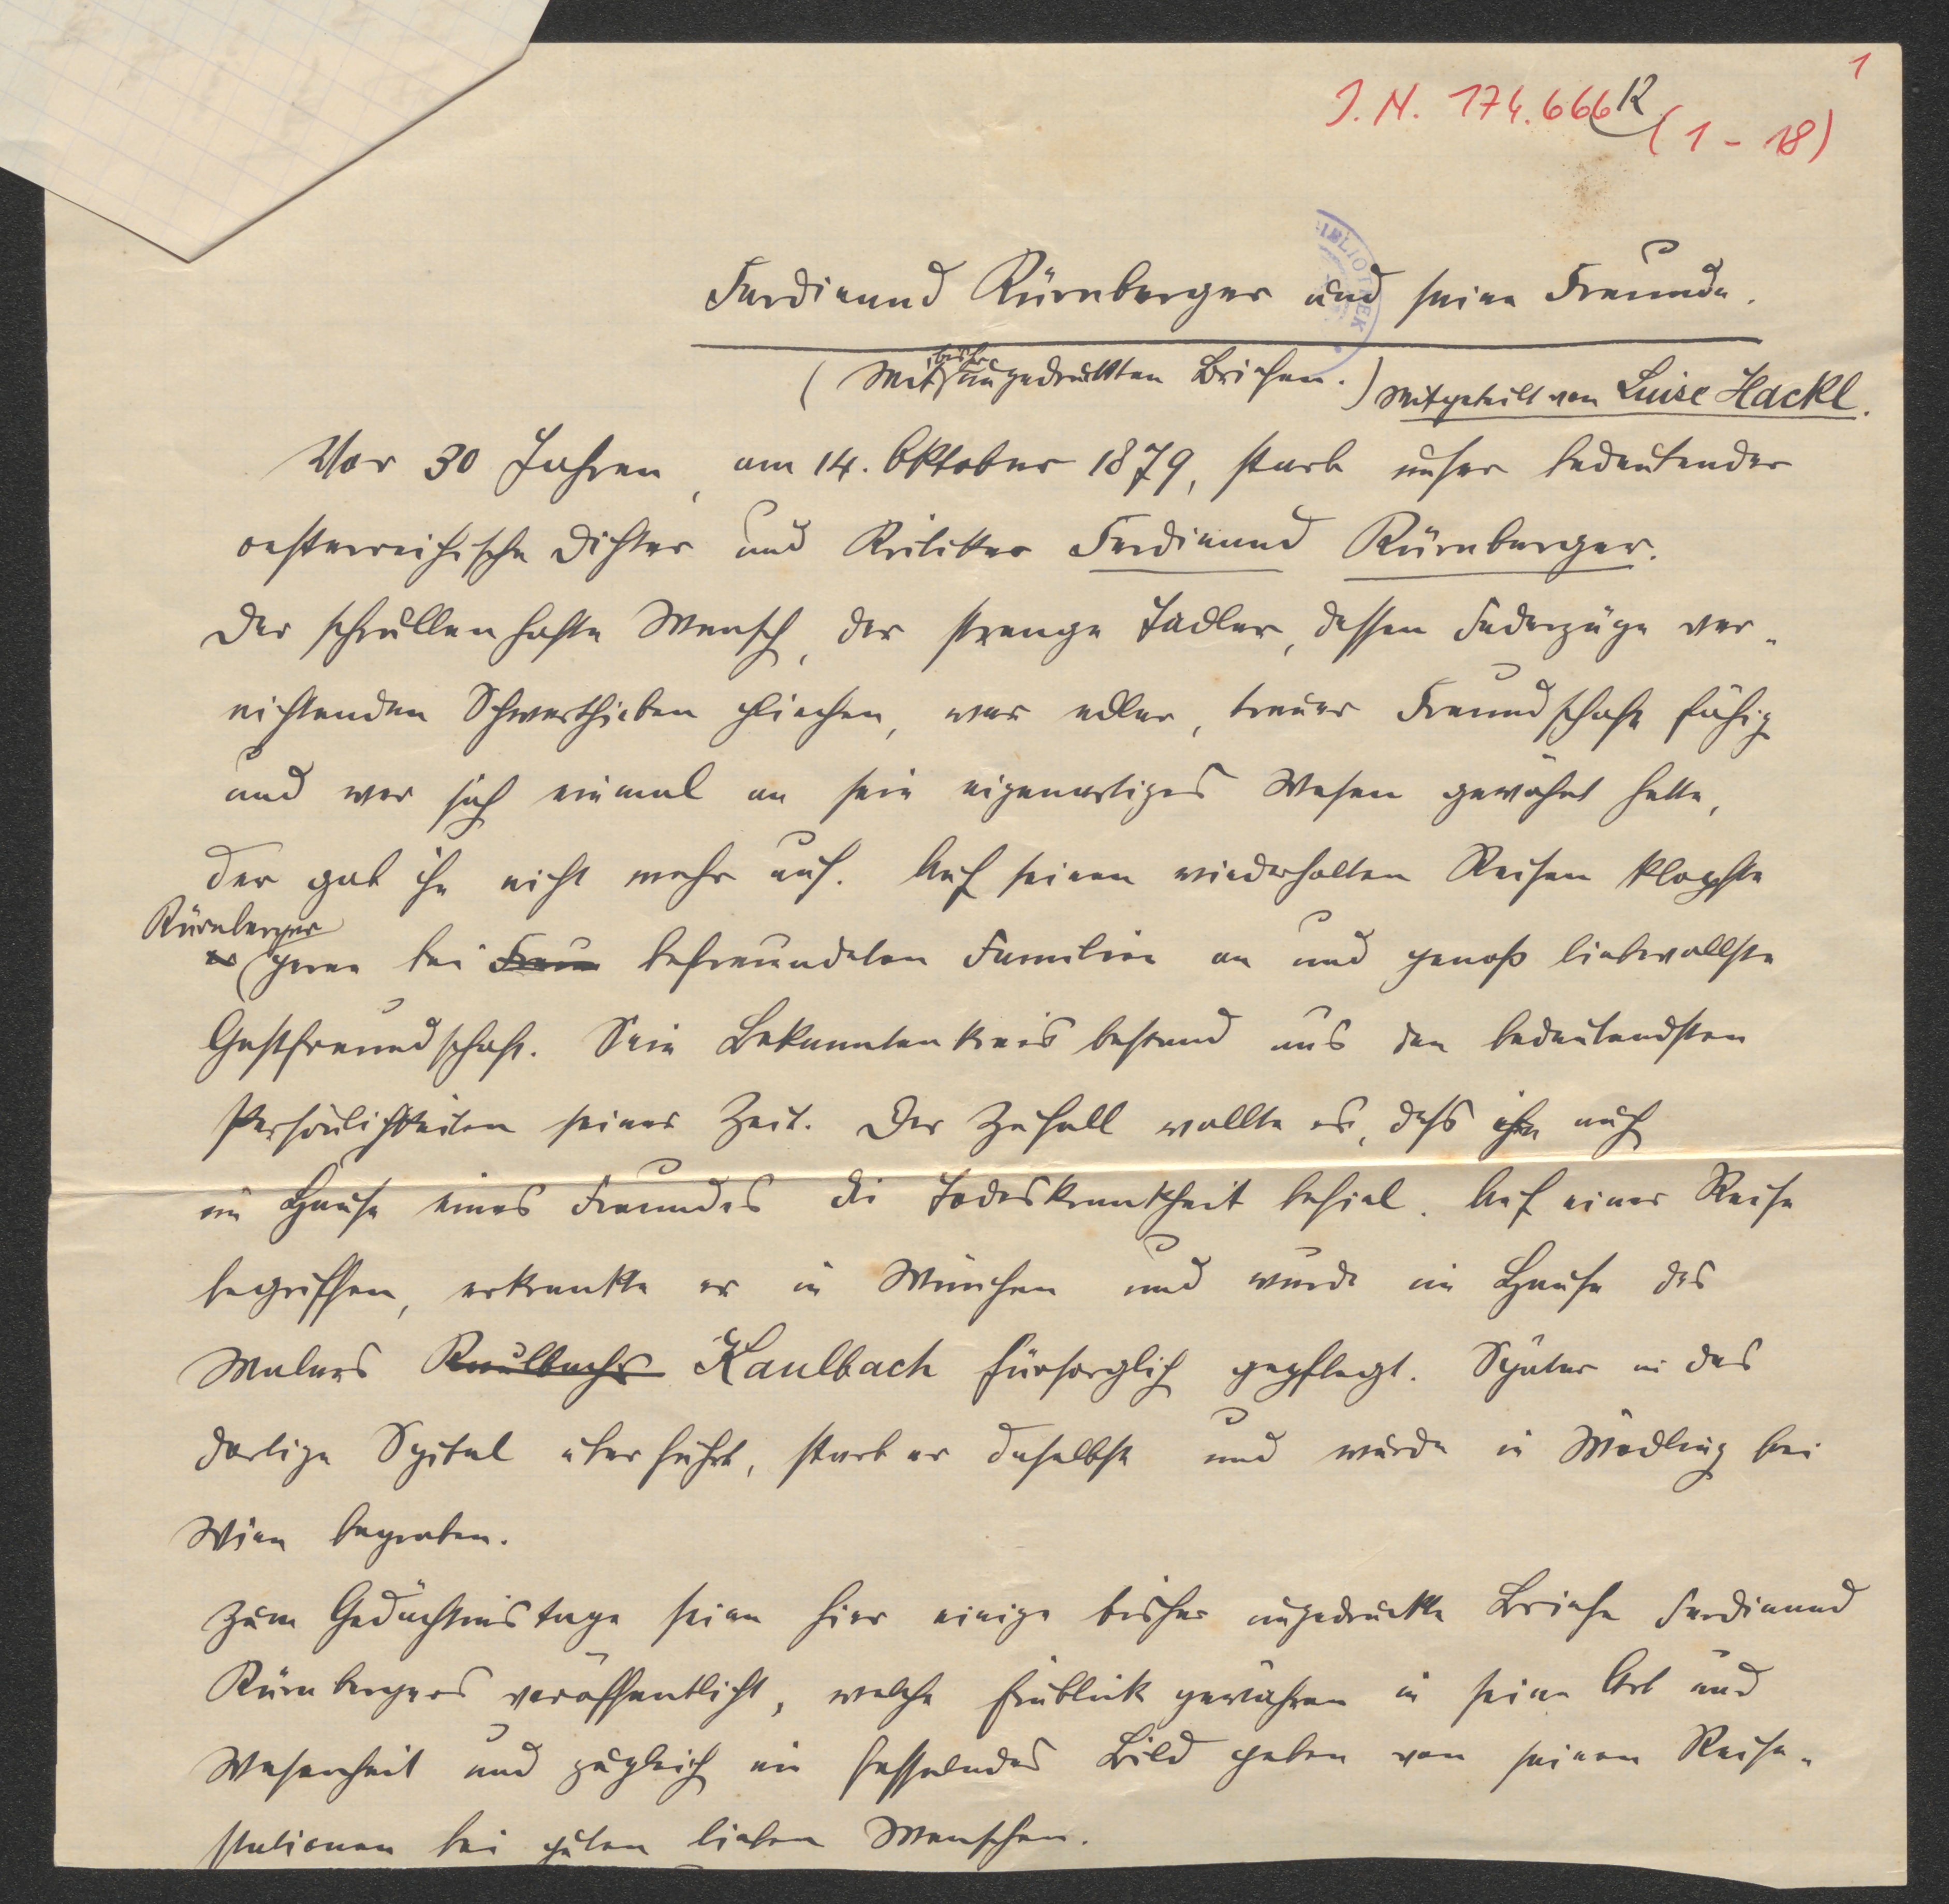 1
J. N. 174.666 R
(1 - 18)
IBLIOTHEK
Ferdinand Kürnberger und seine Freunde.
(Mit bisher ungedruckten Briefen.) Mitgeteilt von Luise Hackl.
Vor 30 Jahren, am 14. Oktober 1879, starb unser bedeutender
oesterreichische Dichter und Kritiker Ferdinand Kürnberger.
Der schrullenhafte Mensch, der strenge Tadler, dessen Federzüge ver-
nichtenden Schwerthieben gliechen, war edler, treuer Freundschaft fähig
und wer sich einmal an sein eigenartiges Wesen gewöhnt hatte,
der gab ihn nicht mehr auf. Auf seinen wiederholten Reisen klopfte
Kürnberger
er gerne bei Freun befreundeten Familien an und genoß liebevollste
Gastfreundschaft. Sein Bekanntenkreis bestand aus den bedeutendsten
Persönlichkeiten seiner Zeit. Der Zufall wollte es, dass ihn auch
im Hause eines Freundes die Todeskrankheit befiel. Auf einer Reise
begriffen, erkrankte er in München und wurde im Hause des
Malers Kaulbachs Kaulbach fürsorglich gepflegt. Später in das
dortige Spital überführt, starb er daselbst und wurde in Mödling bei
Wien begraben.
Zum Gedächtnistage seien hier einige bisher ungedruckte Briefe Ferdinand
Kürnbergers veröffentlicht, welche Einblick gewähren in seine Art und
Wesenheit und zugleich ein fesselndes Bild geben von seinen Reise-
stationen bei guten lieben Menschen.